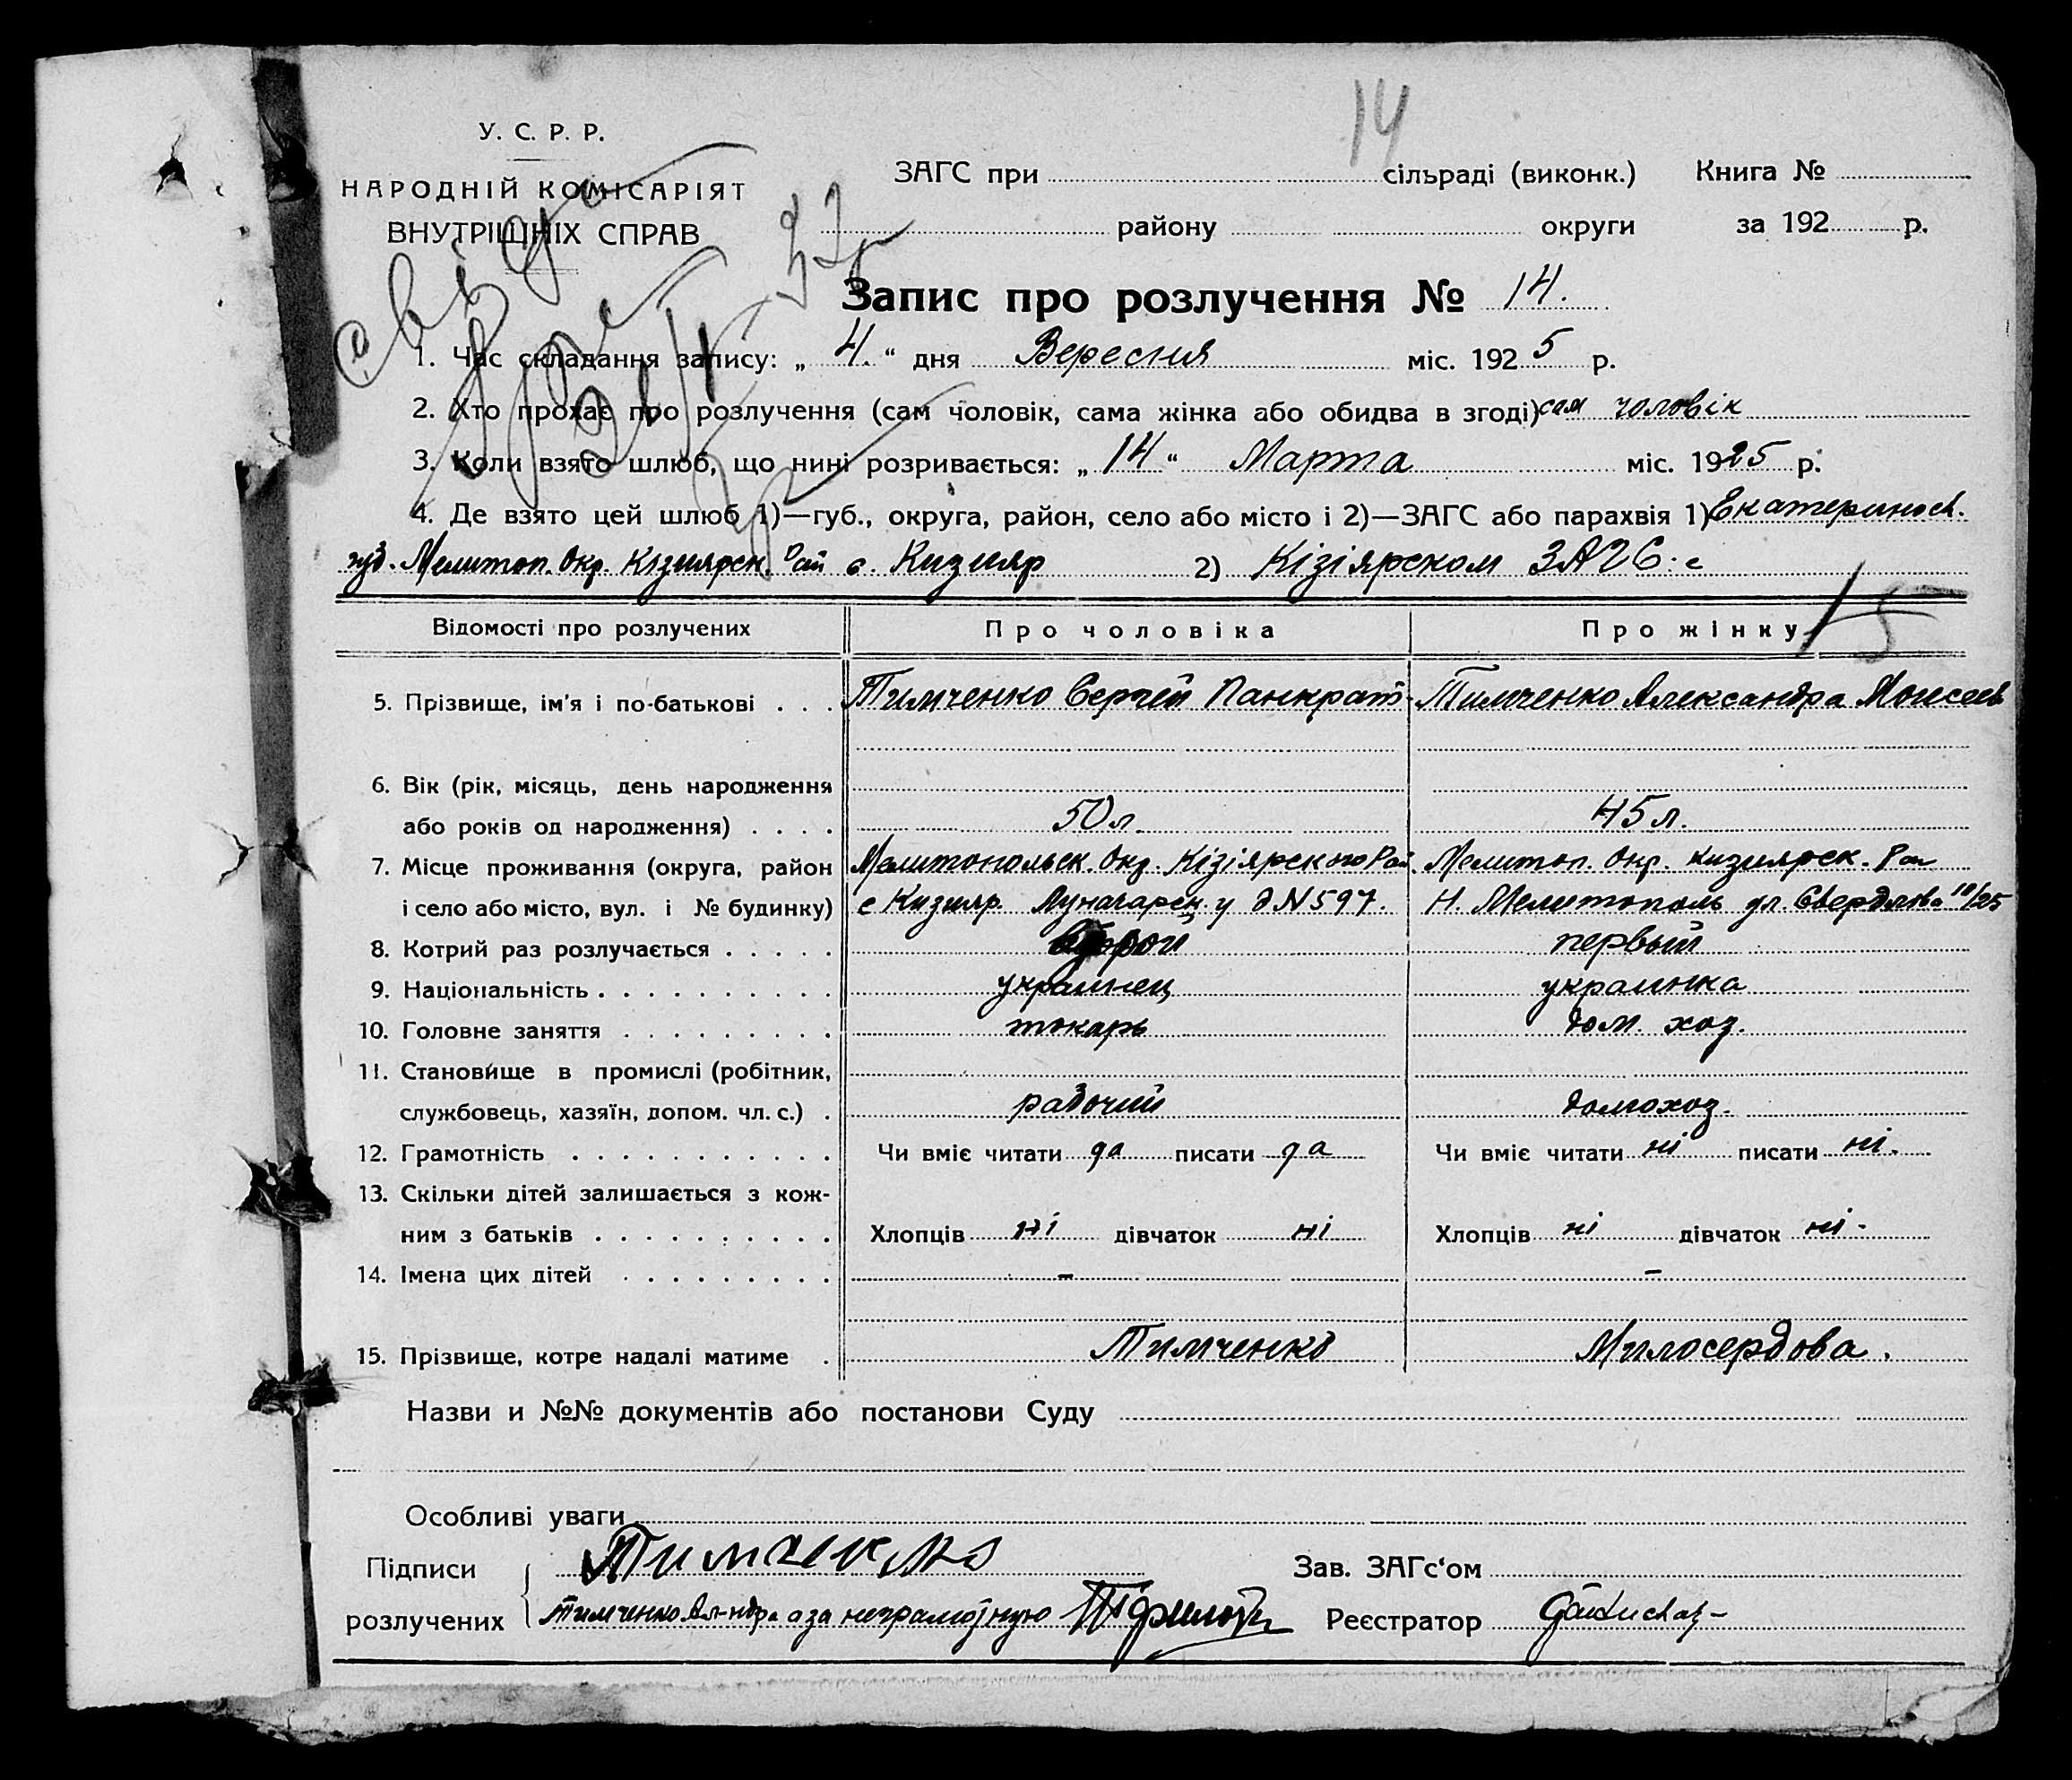 14
У. С. Р. Р.
НАРОДНІЙ КОМІСАРІЯТ
ВНУТРІШНІХ СПРАВ
ЗАГС при сільраді (виконк.) Книга №
району округи за 192 р.
Запис про розлучення № 14.
1. Час складання запису: „ 4. “ дня Вересня міс. 1925 р.
2. Хто прохає про розлучення (сам чоловік, сама жінка або обидва в згоді) сам чоловік
3. Коли взято шлюб, що нині розривається: „ 14 “ Марта міс. 1925 р.
4. Де взято цей шлюб 1)—губ., округа, район, село або місто і 2)—ЗАГС або парахвія 1) Екатериносл.
губ. Мелитоп. Окр. Кізиярск. Рай с. Кизияр 2) Кізіярском ЗАГС:е
15
Відомості про розлучених Про чоловіка Про жінку
5. Прізвище, ім'я і по-батькові . . . Тимченко Сергей Панкрат. Тимченко Александра Моисеев
6. Вік (рік, місяць, день народження
або років од народження) . . . . 50 л. 45 л.
7. Місце проживання (округа, район Мелитопольск. Окр. Кізіярского Рай. Мелитоп. Окр. Кизиярск. Рай
і село або місто, вул. і № будинку) с Кизияр Луначарск. у д N 597. Н. Мелитополь ул. Свердлова 10/25
8. Котрий раз розлучається . . . . . второй первый
9. Національність . . . . . . . . . . украинец украинка
10. Головне заняття . . . . . . . . . токарь дом. хоз.
11. Становище в промислі (робітник,
службовець, хазяїн, допом. чл. с.) . рабочий домохоз.
12. Грамотність . . . . . . . . . . . Чи вміє читати да писати да Чи вміє читати ні писати ні.
13. Скільки дітей залишається з кож-
ним з батьків . . . . . . . . . . Хлопців ні дівчаток ні Хлопців ні дівчаток ні.
14. Імена цих дітей . . . . . . . . . – –
15. Прізвище, котре надалі матиме . Тимченко Милосердова.
Назви и №№ документів або постанови Суду
Особливі уваги
Підписи Тимченко Зав. ЗАГс'ом
розлучених Тимченко Ал-ндра а за неграмотную Реєстратор